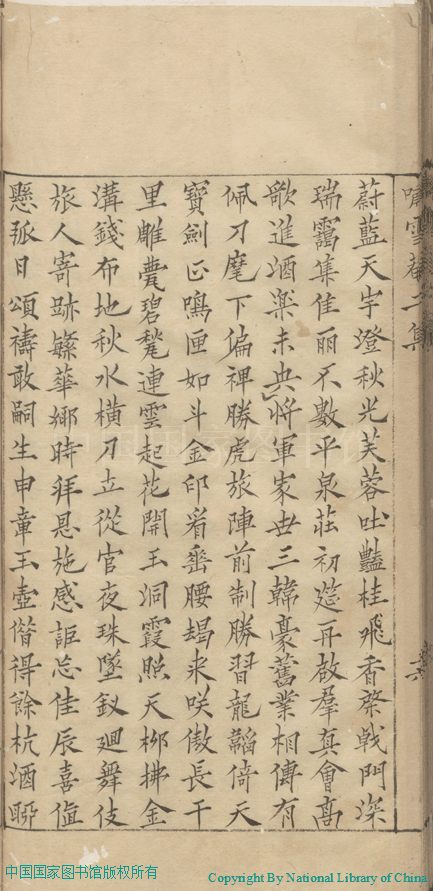 嘯雪菴二集
蔚藍天宇澄秋光芙蓉吐豔桂飛香棨戟門深
瑞靄集佳麗不數平泉莊初筵再啟羣真會高
歌進酒樂未央將軍家世三韓豪舊業相傳有
佩刀麾下偏裨勝虎旅陣前制勝習龍韜倚天
寶劍匹鳴匣如斗金印看垂腰朅来咲傲長干
里雕甍碧甃連雲起花開玉洞霞照天栁拂金
溝錢布地秋水橫刀立從官夜珠墜釵廻舞伎
旅人寄跡蘓華鄉時拜恩施感詎忘佳辰喜值
懸弧日頌禱敢嗣生申章玉壺偕得餘杭酒聊
中国国家图书馆版权所有
Copyright By National Library of China